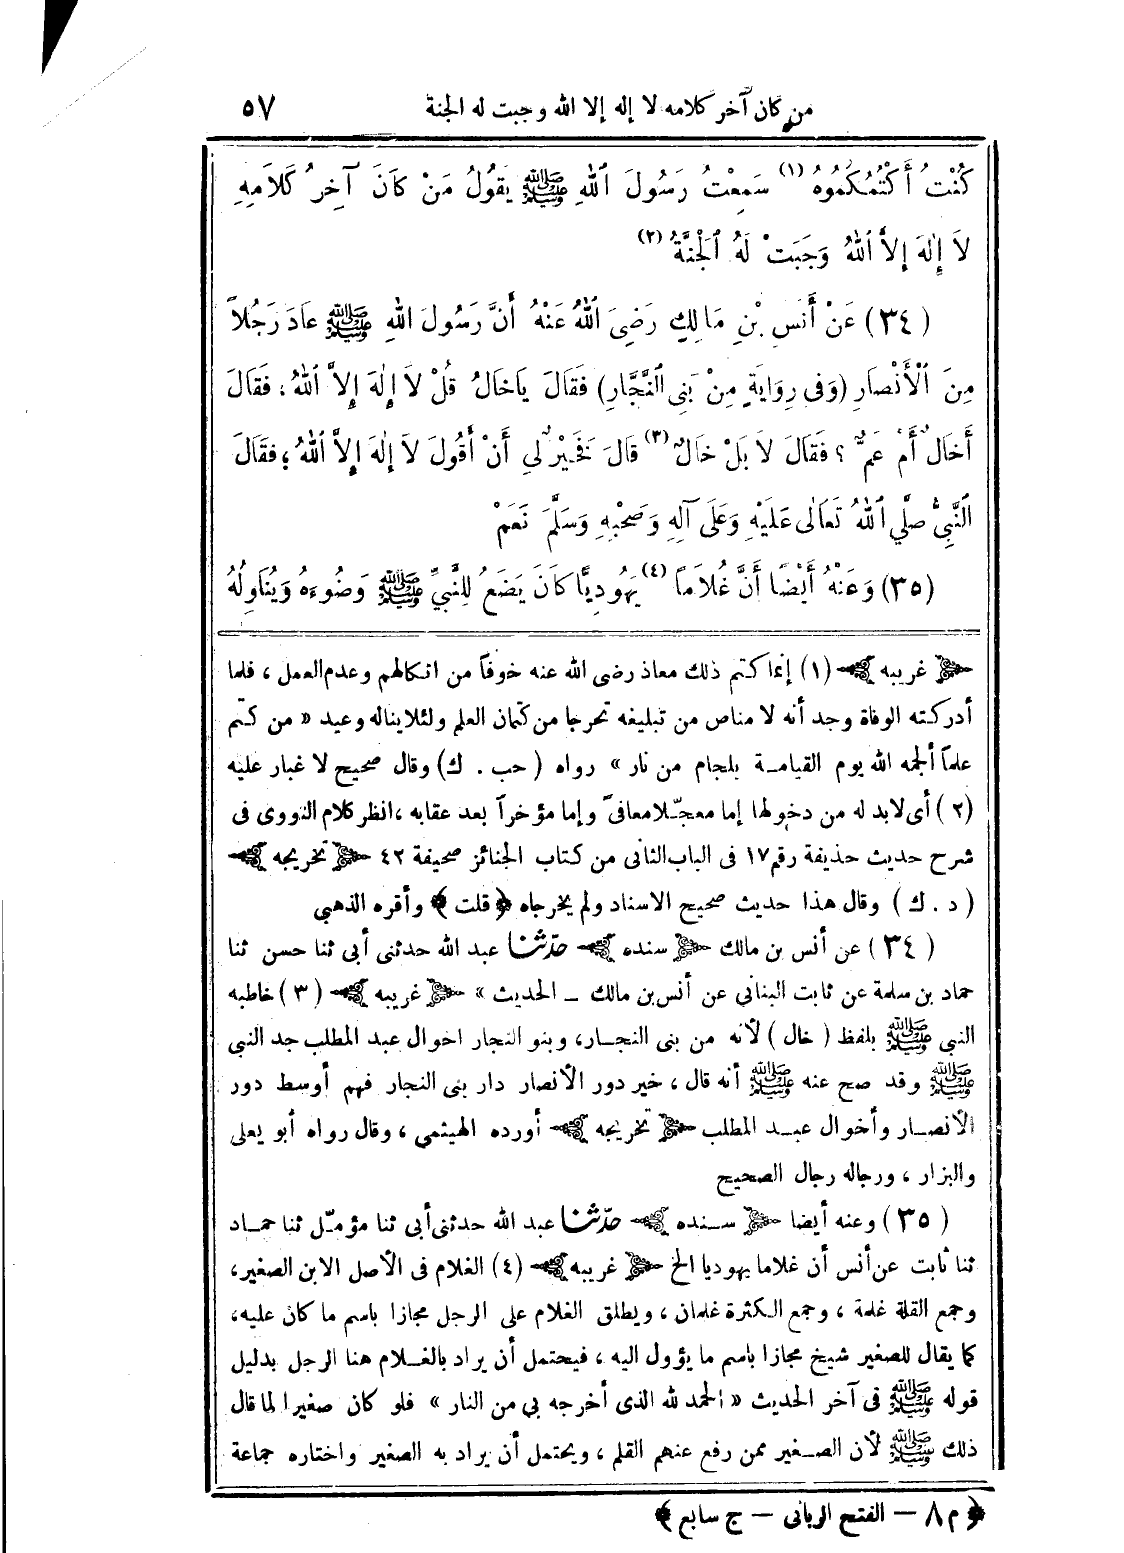 من كان آخر كلامه لا إله إلا الله وجبت له الجنة ٥٧
كُنْتُ أَكْتُمُكُمُوهُ (١) سَمِعْتُ رَسُولَ اللهِ ﷺ يَقُولُ مَنْ كَانَ آخِرُ كَلاَمِهِ
لاَ إِلٰهَ إِلاَّ اللهُ وَجَبَتْ لَهُ الْجَنَّةُ (٢)
(٣٤) عَنْ أَنَسِ بْنِ مَالِكٍ رَضِىَ اللهُ عَنْهُ أَنَّ رَسُولَ اللهِ ﷺ عَادَ رَجُلاً
مِنَ الْأَنْصَارِ (وَفِى رِوَايَةٍ مِنْ بَنِى النَّجَّارِ) فَقَالَ يَاخَالُ قُلْ لاَ إِلٰهَ إِلاَّ اللهُ، فَقَالَ
أَخَالٌ أَمْ عَمٌّ ؟ فَقَالَ لاَ بَلْ خَالٌ (٣) قَالَ فَخَيْرٌ لِى أَنْ أَقُولَ لاَ إِلٰهَ إِلاَّ اللهُ؛ فَقَالَ
النَّبِىُّ صَلَّي اللهُ تَعَالَى عَلَيْهِ وَعَلَى آلِهِ وَصَحْبِهِ وَسَلَّمَ نَعَمْ
(٣٥) وَعَنْهُ أَيْضًا أَنَّ غُلاَمًا (٤) يَهُودِيًّا كَانَ يَضَعُ لِلنَّبِيِّ ﷺ وَضُوءَهُ وَيُنَاوِلُهُ
﴿ غريبه ﴾ (١) إنما كتم ذلك معاذ رضى الله عنه خوفاً من اتكالهم وعدم العمل ، فلما
أدركته الوفاة وجد أنه لا مناص من تبليغه تحرجا من كتمان العلم ولئلا يناله وعيد « من كتم
علماً ألجمه الله يوم القيامــة بلجام من نار » رواه ( حب . ك) وقال صحيح لا غبار عليه
(٢) أى لابد له من دخولها إما معجّلا معافىً وإما مؤخراً بعد عقابه ، انظر كلام النووى فى
شرح حديث حذيفة رقم ١٧ فى الباب الثانى من كتاب الجنائز صحيفة ٤٢ ﴿ تخريجه ﴾
( د . ك ) وقال هذا حديث صحيح الاسناد ولم يخرجاه ﴿ قلت ﴾ وأقره الذهبي
(٣٤) عن أنس بن مالك ﴿ سنده ﴾ حدّثنا عبد الله حدثنى أبى ثنا حسن ثنا
حماد بن سلمة عن ثابت البناني عن أنس بن مالك ــ الحديث » ﴿ غريبه ﴾ (٣) خاطبه
النبى ﷺ بلفظ ( خال ) لأنه من بنى النجــار، وبنو النجار اخوال عبد المطلب جد النبي
ﷺ وقد صح عنه ﷺ أنه قال ، خير دور الأنصار دار بنى النجار فهم أوسط دور
الأنصــار وأخوال عبــد المطلب ﴿ تخريجه ﴾ أورده الهيثمي ، وقال رواه أبو يعلى
والبزار ، ورجاله رجال الصحيح
(٣٥) وعنه أيضا ﴿ ســنده ﴾ حدّثنا عبد الله حدثنى أبى ثنا مؤمّل ثنا حمــاد
ثنا ثابت عن أنس أن غلاما يهوديا الخ ﴿ غريبه ﴾ (٤) الغلام فى الأصل الابن الصغير،
وجمع القلة غلمة ، وجمع الكثرة غلمان ، ويطلق الغلام على الرجل مجازا باسم ما كان عليه،
كما يقال للصغير شيخ مجازا باسم ما يؤول اليه ، فيحتمل أن يراد بالغــلام هنا الرجل بدليل
قوله ﷺ فى آخر الحديث « الحمد لله الذى أخرجه بي من النار » فلو كان صغيرا لما قال
ذلك ﷺ لأن الصــغير ممن رفع عنهم القلم ، ويحتمل أن يراد به الصغير واختاره جماعة
﴿ م ٨ — الفتح الربانى — ج سابع ﴾